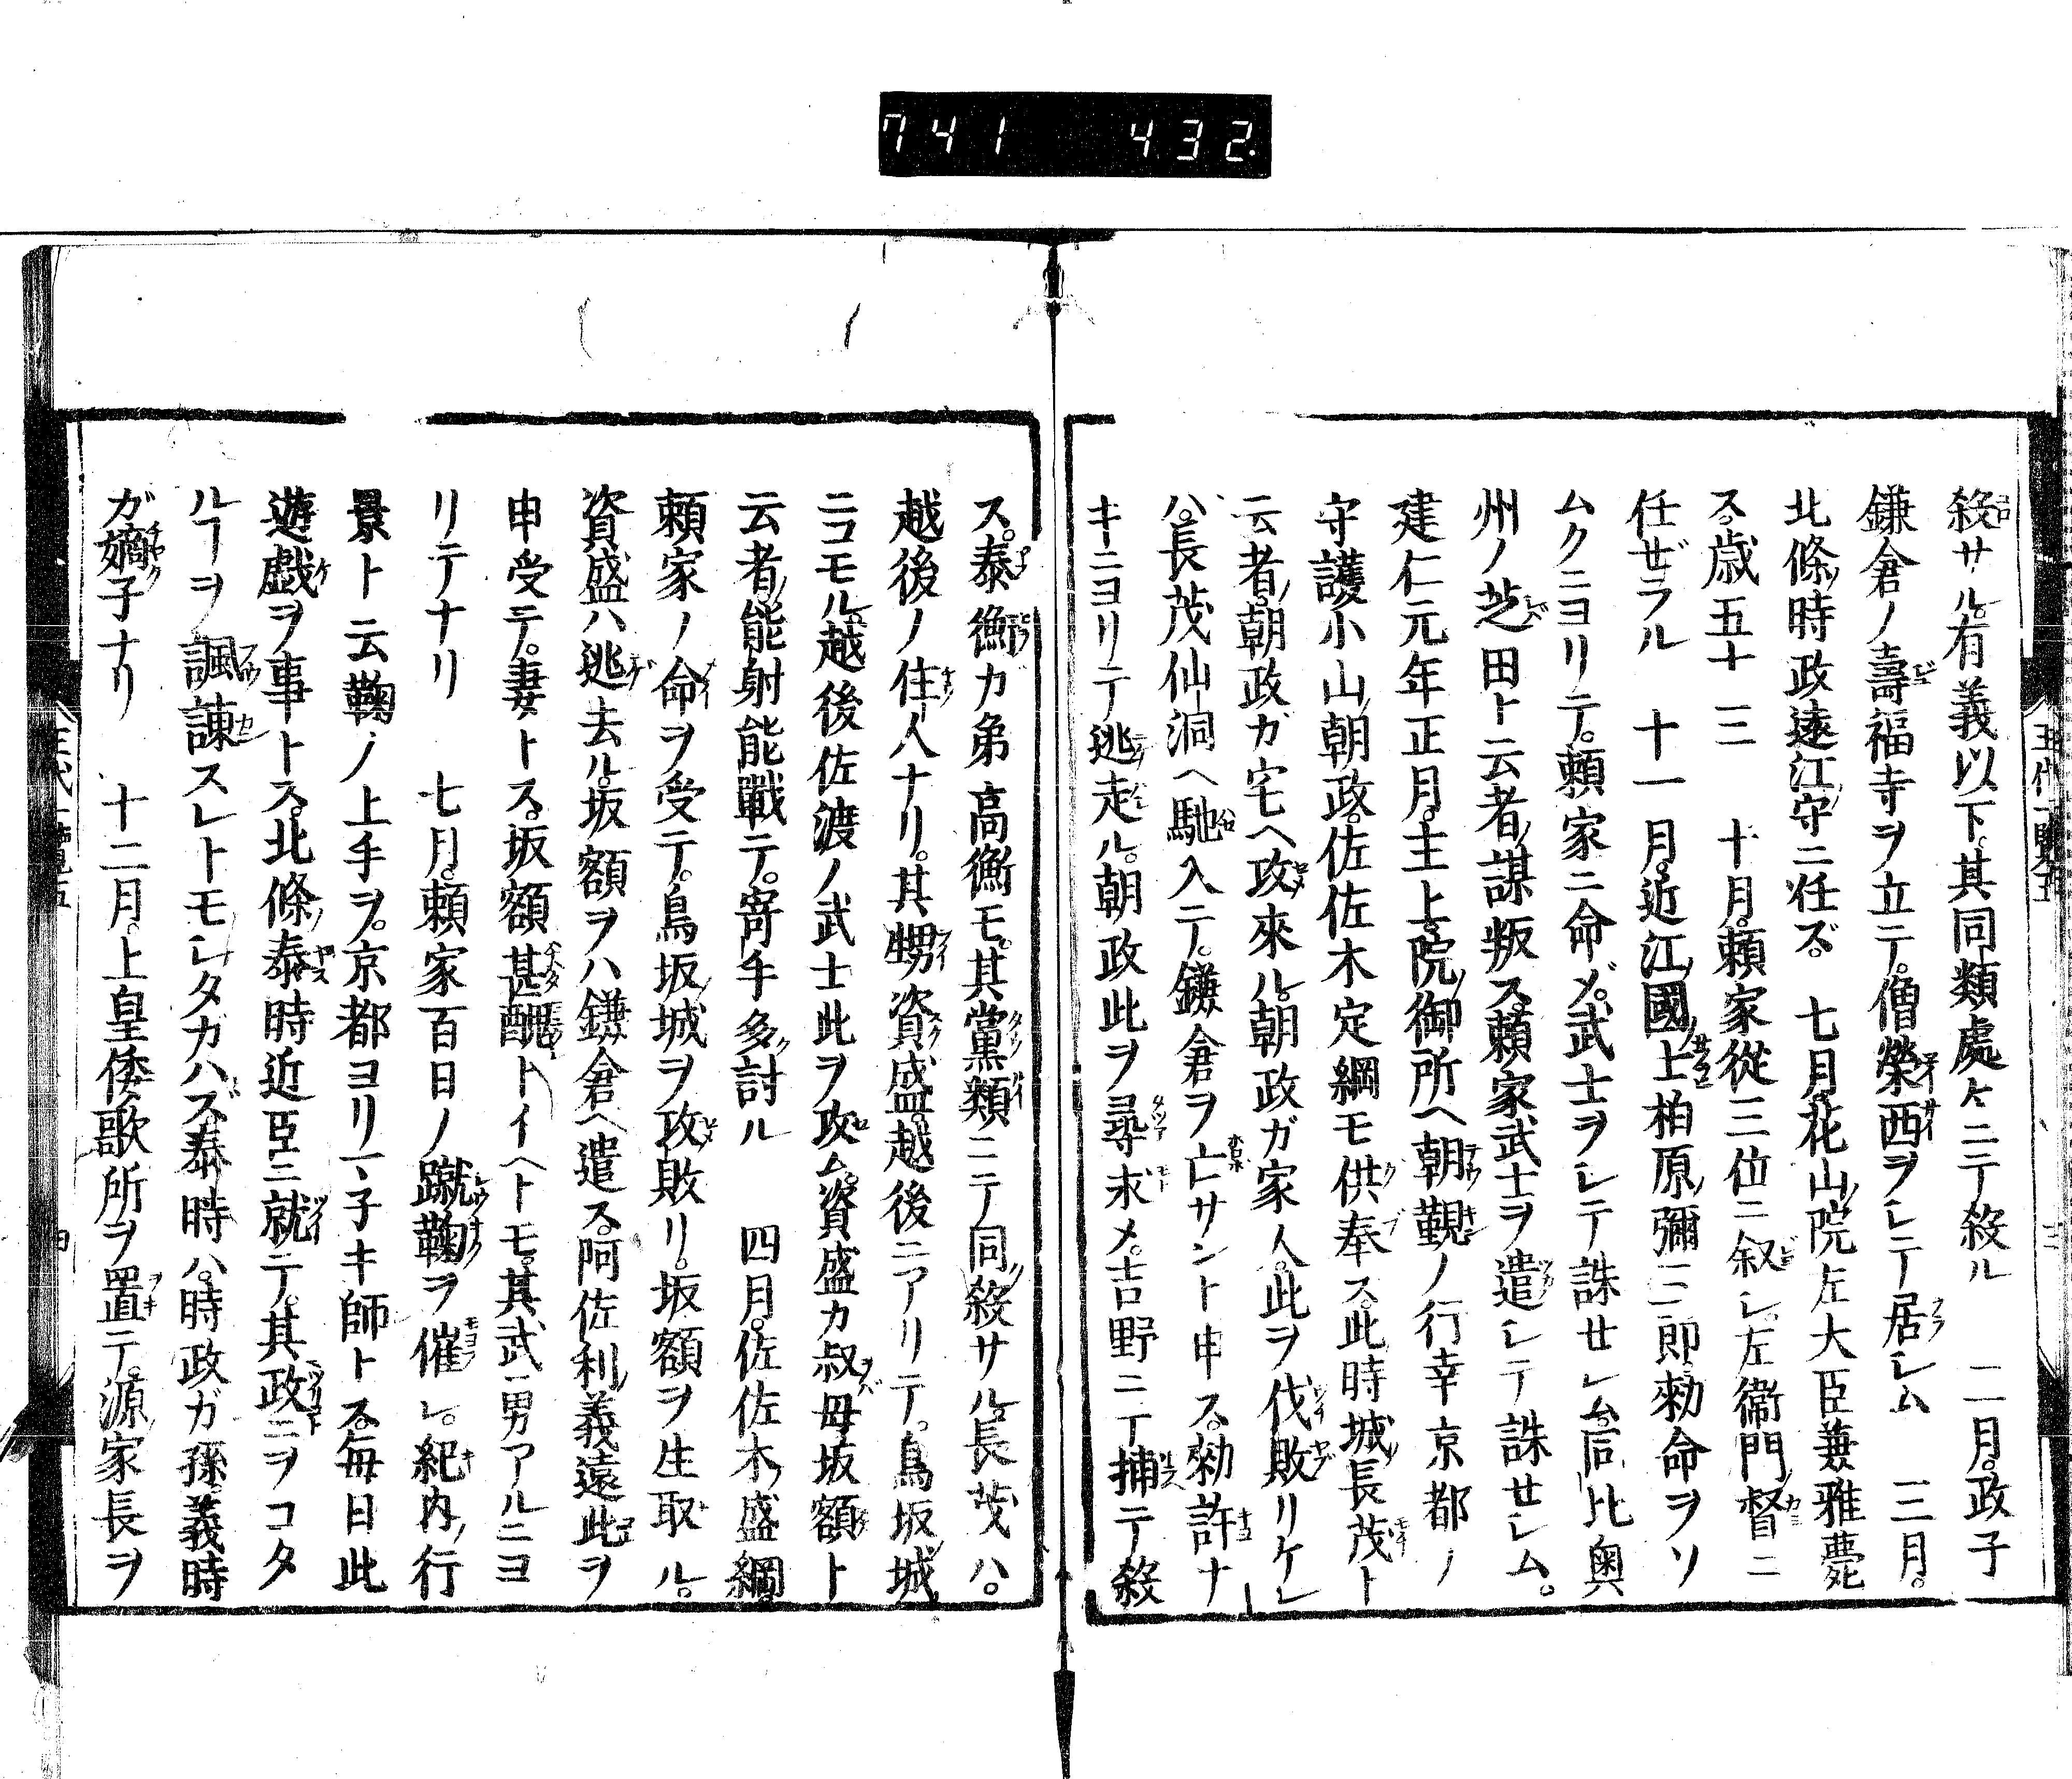 741 432.
殺サル。有義以下。其同類處々ニテ殺ル 二月。政子
鎌倉ノ壽福寺ヲ立テ。僧榮西ヲシテ居シム 三月。
北條時政遠江守ニ任ズ。 七月。花山院左大臣兼雅薨
ス。歳五十三 十月。頼家從三位ニ叙シ。左衞門督ニ
任ゼラル 十一月。近江國ノ上柏原彌三郎勅命ヲソ
ムクニヨリテ。頼家ニ命メ。武士ヲシテ誅セシム。同比奥
州ノ芝田ト云者。謀叛ス。頼家武士ヲ遣シテ誅セシム。
建仁元年正月。主上院御所ヘ朝覲ノ行幸京都ノ
守護小山朝政。佐佐木定綱モ供奉ス。此時城長茂ト
云者。朝政ガ宅ヘ攻來ル。朝政ガ家人。此ヲ伐敗リケレ
ハ。長茂仙洞ヘ馳入テ。鎌倉ヲ亡サント申ス。勅許ナ
キニヨリテ逃走ル。朝政此ヲ尋求メ。吉野ニテ捕テ殺
ス。泰衡カ弟高衡モ。其黨類ニテ同殺サル。長茂ハ。
越後ノ住人ナリ。其甥資盛。越後ニアリテ。鳥坂城
ニコモル。越後佐渡ノ武士此ヲ攻ム。資盛カ叔母坂額ト
云者。能射能戰テ。寄手多討ル 四月。佐佐木盛綱。
頼家ノ命ヲ受テ。鳥坂城ヲ攻敗リ。坂額ヲ生取ル。
資盛ハ逃去ル。坂額ヲハ鎌倉ヘ遣ス。阿佐利義遠此ヲ
申受テ。妻トス。坂額甚醜トイヘトモ。其武勇アルニヨ
リテナリ 七月。頼家百日ノ蹴鞠ヲ催シ。紀内行
景ト云鞠ノ上手ヲ。京都ヨリマ子キ師トス。毎日此
遊戯ヲ事トス。北條泰時近臣ニ就テ。其政ニヲコタ
ルヿヲ諷諌スレトモシタガハズ泰時ハ。時政ガ孫義時
ガ嫡子ナリ 十二月。上皇倭歌所ヲ置テ。源家長ヲ